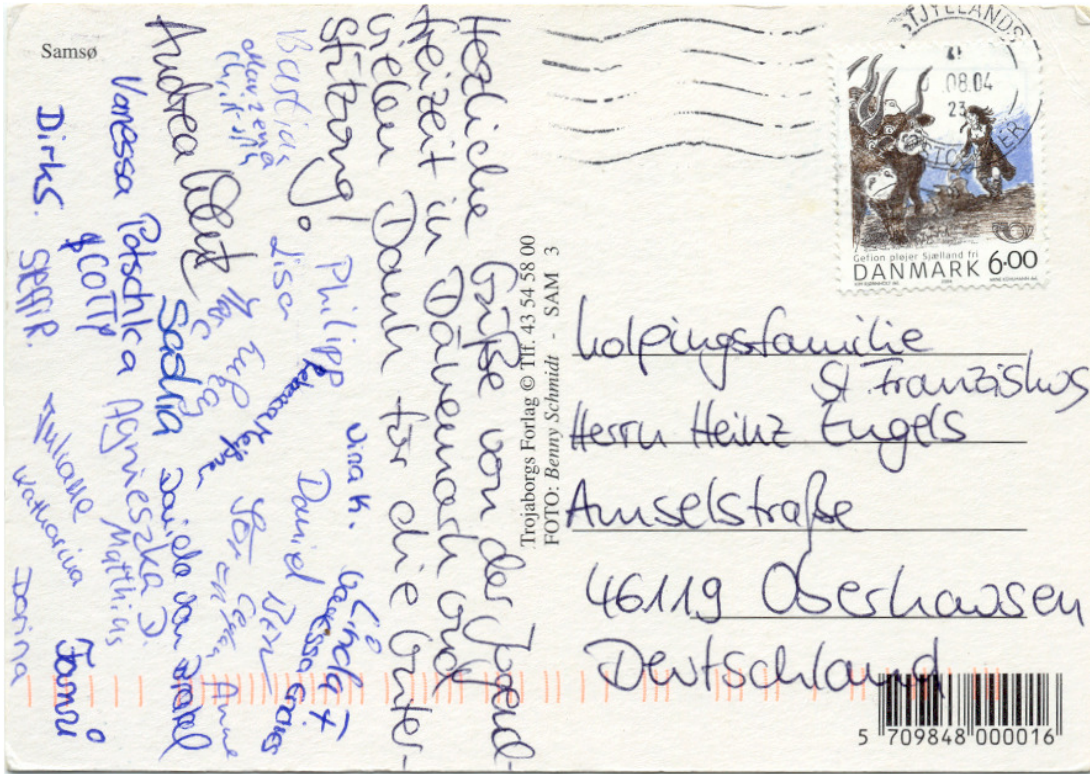 Samsø
Herzliche Grüße von der Jugend-
freizeit in Dänemark und
vielen Dank für die Unter-
stützung!
Bastian
Lisa
Philipp
Nina K.
Daniel
Linda F
Vanessa
Andrea
Saskia
Daniela van
Anne
Vanessa Potschka
Agnieszka D.
Matthias
$COTTY
Dirks.
STEFFIR.
Juliane
Katharina
Dorina
Jannis
Trojaborgs Forlag © Tlf. 43 54 58 00
FOTO: Benny Schmidt - SAM 3
TJYLLANDS
.08.04
23
Gefion pløjer Sjælland fri
DANMARK 6.00
Kolpingsfamilie
St Franziskus
Herrn Heinz Engels
Amselstraße
46119 Oberhausen
Deutschland
5 709848 000016